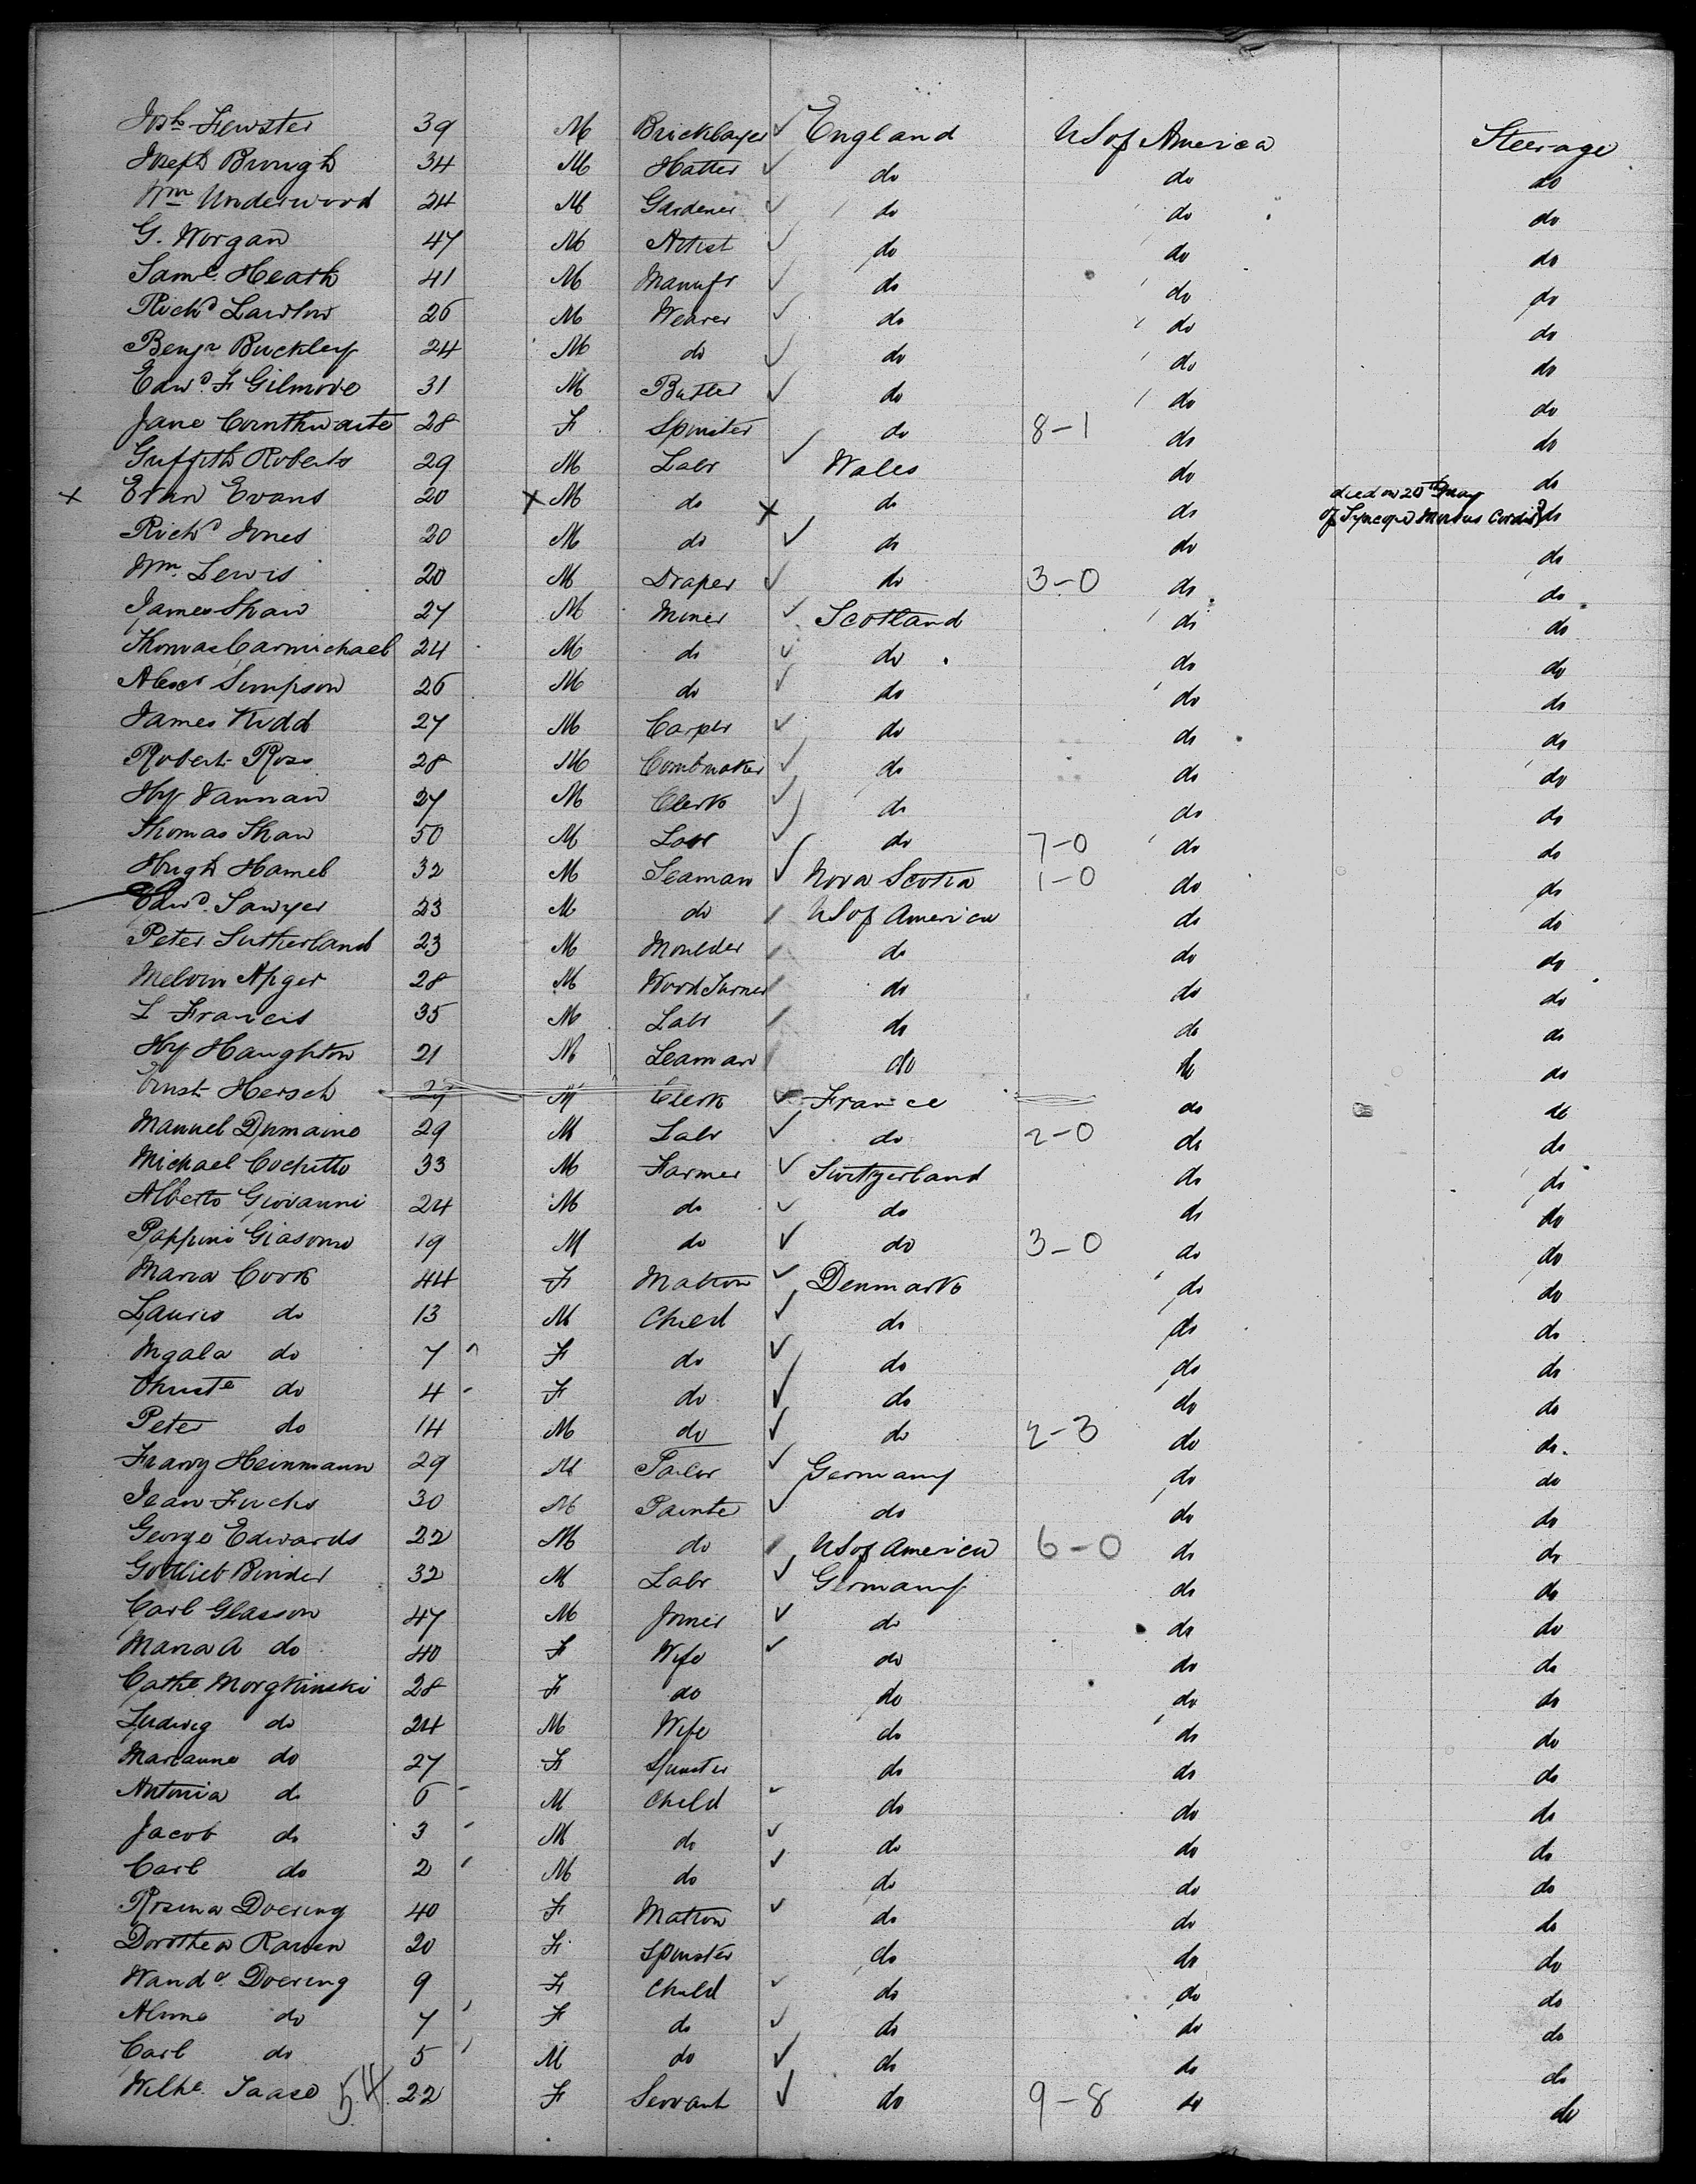 Josh Fewster 39 M Bricklayer England US of America Steerage
Joseph Brough 34 M Hatter do do do
Wm Underwood 24 M Gardener do do do
G. Worgan 47 M Artist do do do
Saml Heath 41 M Manufr do do do
Richd Lawlow 26 M Weaver do do do
Benjn Buckley 24 M do do do do
Edwd F Gilmore 31 M Butler do do do
Jane Cornthwaite 28 F Spinster do 8-1 do do
Griffith Roberts 29 M Labr Wales do do
x Evan Evans 20 x M do x do do died on 20th May of Syncope Cordis do
Richd Jones 20 M do do do do
Wm Lewis 20 M Draper do 3-0 do do
James Shaw 27 M Miner Scotland do do
Thomas Carmichael 24 M do do do do
Alexr Simpson 26 M do do do do
James Kidd 27 M Carptr do do do
Robert Ross 28 M Combmaker do do do
Hy Hannan 27 M Clerk do do do
Thomas Shaw 50 M Labr do 7-0 do do
Hugh Hamel 32 M Seaman Nova Scotia 1-0 do do
Edwd Sawyer 23 M do US of America do do
Peter Sutherland 23 M Moulder do do do
Melvin Apger 28 M Wood Turner do do do
L Francis 35 M Labr do do do
Hy Haughton 21 M Seaman do do do
Ernst Hersch 27 M Clerk France do do
Manuel Dumaine 29 M Labr do 2-0 do do
Michael Cochetto 33 M Farmer Switzerland do do
Alberto Giovanni 24 M do do do do
Pappini Giasomo 19 M do do 3-0 do do
Maria Cork 44 F Matron Denmark do do
Lauris do 13 M Child do do do
Ingala do 7 F do do do do
Christe do 4 F do do do do
Peter do 14 M do do 2-3 do do
Franz Heinmann 29 M Tailor Germany do do
Jean Fuchs 30 M Painter do do do
George Edwards 22 M do US of America 6-0 do do
Gottlieb Binder 32 M Labr Germany do do
Carl Glasson 47 M Joiner do do do
Maria A do 40 F Wife do do do
Cathe Morgkinski 28 F do do do do
Ludwig do 24 M Wife do do do
Marianne do 27 F Spinster do do do
Antonia do 6 M Child do do do
Jacob do 3 M do do do do
Carl do 2 M do do do do
Rosina Doering 40 F Matron do do do
Dorothea Rauen 20 F Spinster do do do
Wanda Doering 9 F Child do do do
Alma do 7 F do do do do
Carl do 5 M do do do do
Wilhe Saase 54 22 F Servant do 9-8 do do